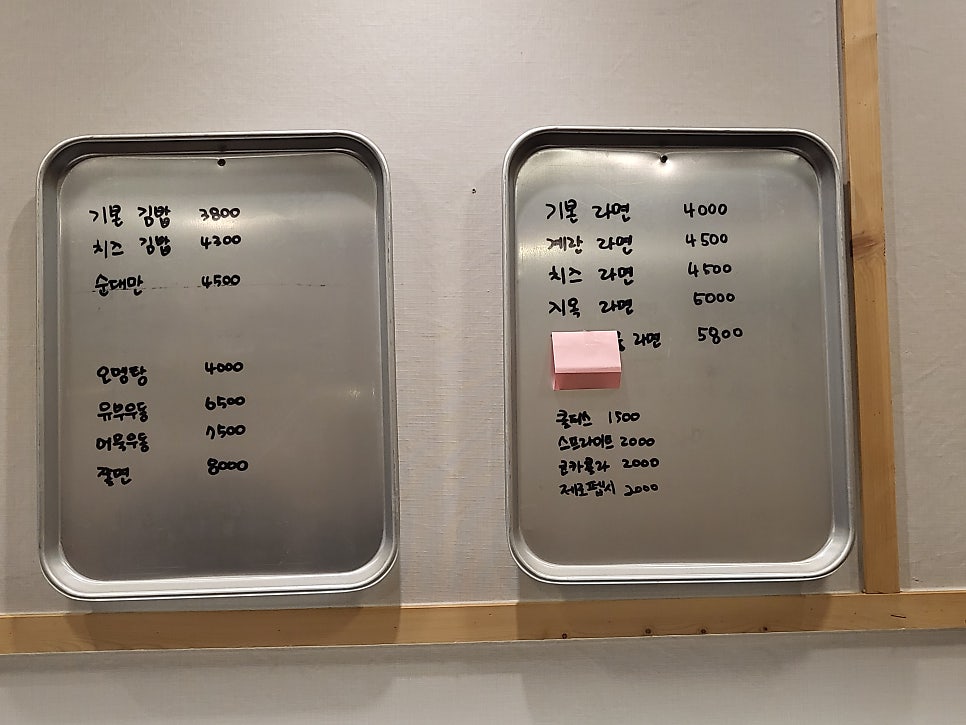 기본 김밥 3800
치즈 김밥 4300
순대만 4500
오뎅탕 4000
유부우동 6500
어묵우동 7500
쫄면 8000
기본 라면 4000
계란 라면 4500
치즈 라면 4500
지옥 라면 5000
라면 5800
쿨피스 1500
스프라이트 2000
코카콜라 2000
제로펩시 2000